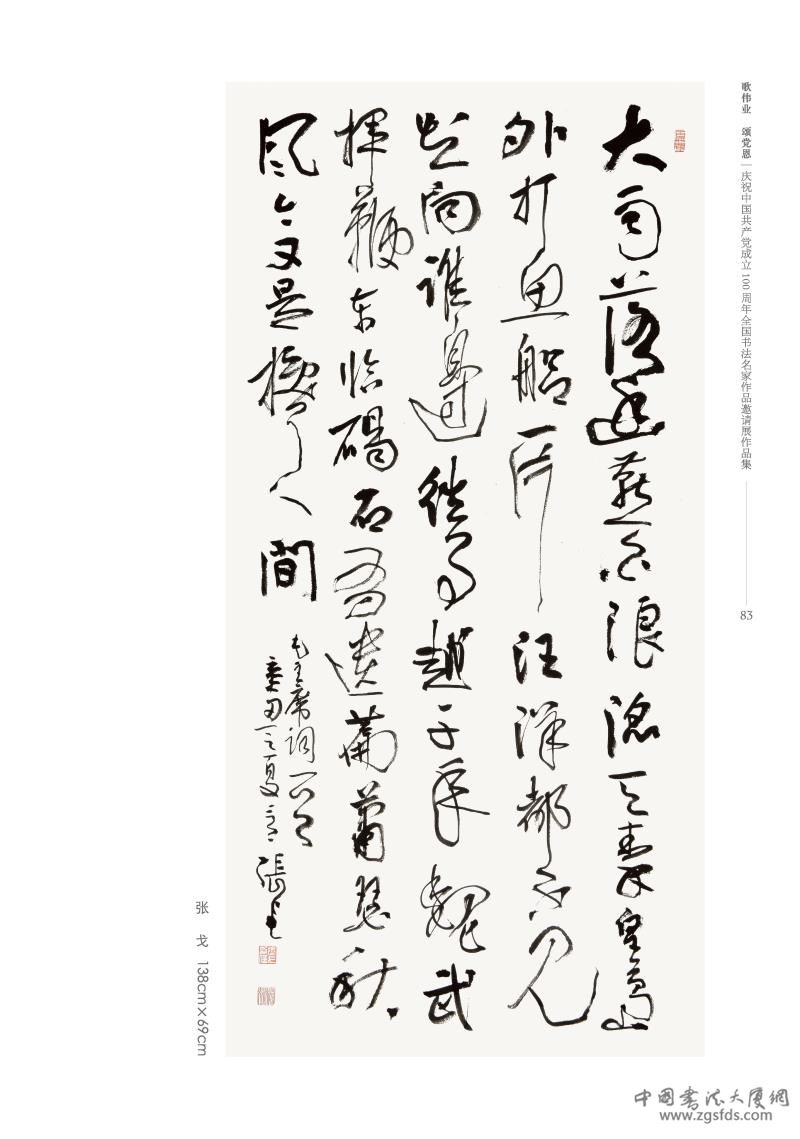 歌伟业 颂党恩 | 庆祝中国共产党成立100周年全国书法名家作品邀请展作品集
83
大雨落幽燕白浪滔天秦皇島
外打魚船一片汪洋都不見
知向誰邊往事越千年魏武
揮鞭东临碣石有遺篇蕭瑟秋
風今又是換了人間
毛主席词一首
辛丑之夏 張戈
张戈 138cm×69cm
中国书法大厦網
www.zgsfds.com